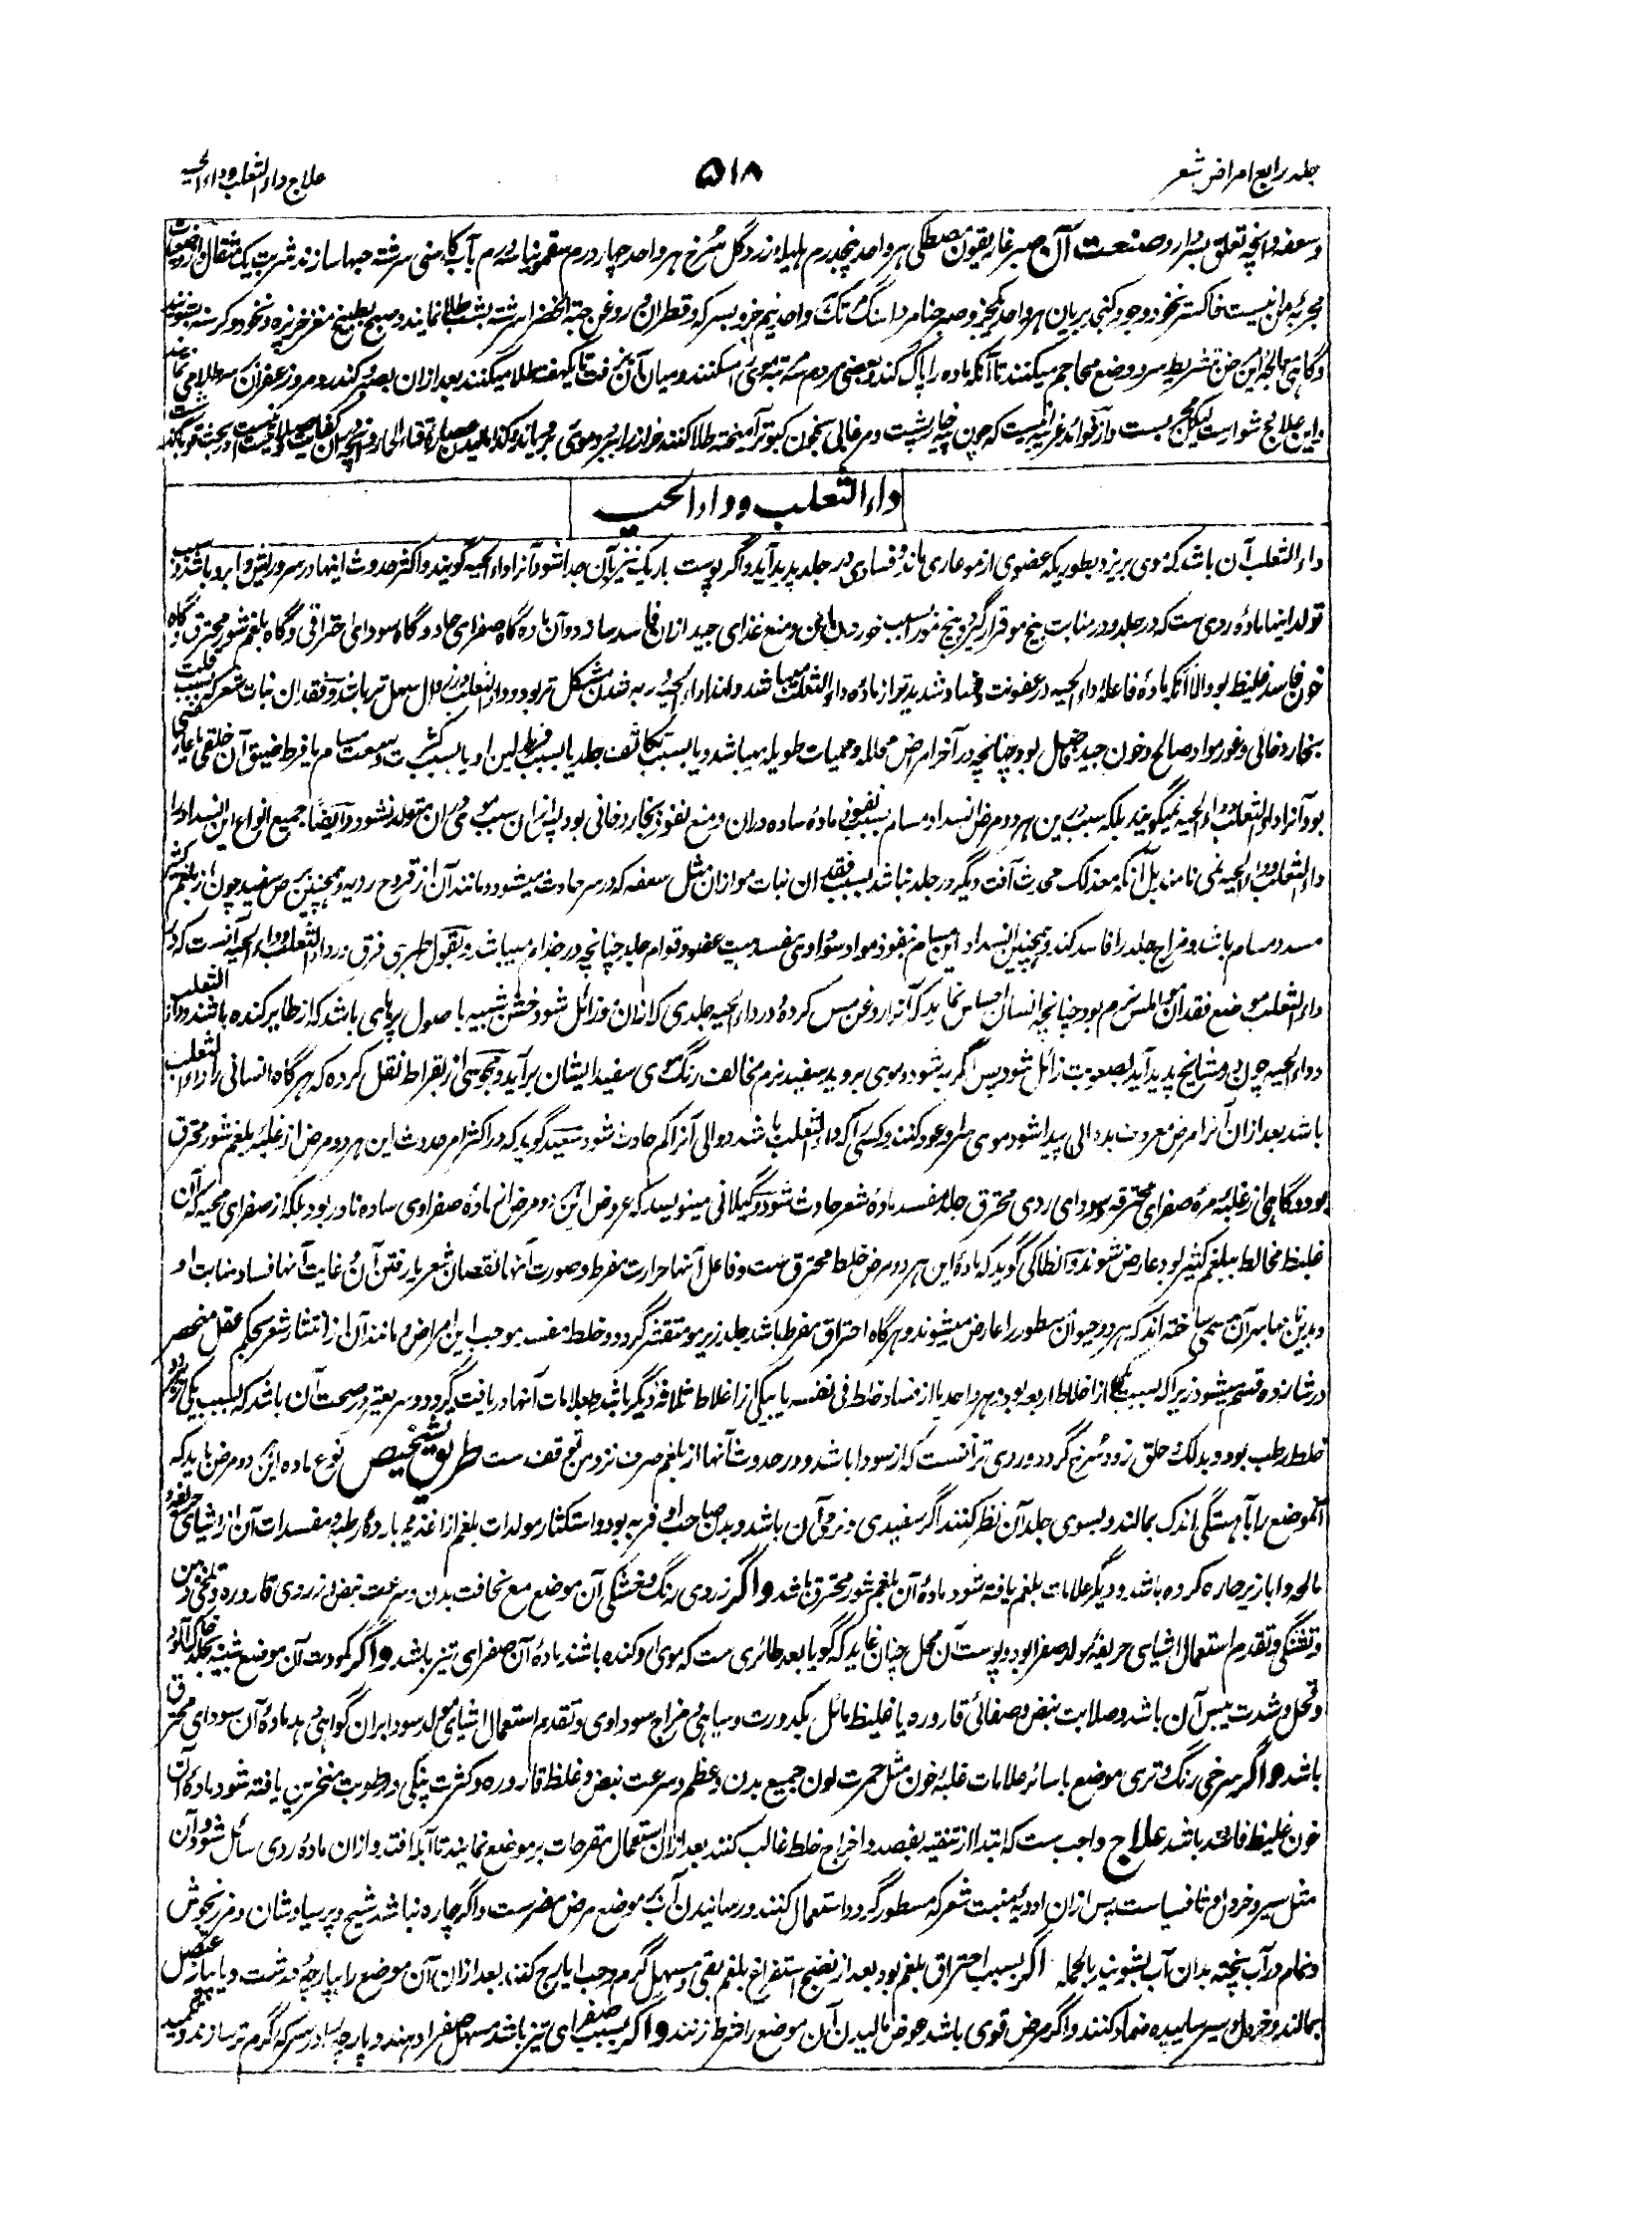 جلد رابع امراض شعر
۵۱۸
علاج داء الثعلب و داء الحیه
و سعفه و آنچه تعلق بسر دارد صنعت آن صبر غاریقون مصطکی هر واحد پنجدرم هلیله زرد گل سرخ هر واحد چهار درم سقمونیا سه درم بآب کاسنی سرشته حبها سازند شربت یک مثقال
مجربه من نیست خاکستر نخود و جو و کنجد بریان هر واحد یکجزو صبر حنا مرداسنگ نمک واحد نیم جزو بسرکه و قطران و روغن حبة الخضرا سرشته بشب طلا نمایند و صبح بطبیخ مغز خربزه و نخود و کرسنه بشویند
و گاهی معالجه این مرض بتشریط سر و وضع محاجم میکنند تا آنکه ماده را پاک کند و بعضی مردم
و این علاج دشوار است لیکن مجرب ست و از فوائد غریبه نیست که چون
داء الثعلب و داء الحیه
داء الثعلب آن باشد که موی بریزد بطوریکه عضوی از مو عاری ماند و فسادی در جلد پدید آید و اگر پوست باریک نیز بآن جدا شود آنرا داء الحیه گویند و اکثر حدوث اینها در سر و ریش و ابرو باشد و سبب
تولد اینها مادهٔ ردی ست که در جلد و در منابت بیخ مو قرار گیرد و بیخ مو را بسبب خوردن آن و منع غذای جید از آن فاسد سازد و آن ماده گاه صفرای حاد و گاه سودای احتراقی و گاه بلغم شور محترق و گاه
خون فاسد غلیظ بود الا آنکه مادهٔ فاعلهٔ داء الحیه در عفونت و فساد شدیدتر از مادهٔ داء الثعلب میباشد و لهذا داء الحیه به شدن مشکل تر بود و داء الثعلب در زوال سهل تر باشد و فقدان نبات شعر که بسبب قلت
بخار دخانی و غور مواد صالح و خون جید حاصل بود چنانچه در آخر امراض محلله و حمیات طویله میباشد و یا بسبب تکاثف جلد یا بسبب فرط لین او یا بسبب کثرت وسعت مسام یا فرط ضیق آن خلقی یا عارضی
بود آنرا داء الثعلب و داء الحیه نمیگویند بلکه سبب این هر دو مرض انسداد مسام بسبب نفوذ مادهٔ ساده دران و منع نفوذ بخار دخانی بود پس ازان سبب موی ازان متولد نشود و ایضاً جمیع انواع این انسداد را
داء الثعلب و داء الحیه نمی نامند بل آنکه معذلک محدث آفت دیگر در جلد نباشد بسبب فقدان نبات مو ازان مثل سعفه که در سر حادث میشود و مانند آن از قروح ردیه و همچنین برص سفید چون از بلغم کثیر
مسدد مسام باشد و مزاج جلد را فاسد کند و همچنین انسداد این مسام بنفوذ مواد سوداوی مفسد هیئت عضو و قوام جلد چنانچه در جذام میباشد و بقول طبری فرق در داء الثعلب و داء الحیه آنست که در
داء الثعلب موضع فقدان مو املس نرم بود چنانچه انسان احساس نماید که آنرا روغن مس کرده و در داء الحیه جلدی که ازان مو زائل شود خشن شبیه باصول پرهای باشد که از طائر کنده باشند و داء الثعلب
و داء الحیه چون بمشایخ پدید آید بصعوبت زائل شود پس اگر به شود و موی بروید سفید نرم مخالف رنگ موی سفید ایشان برآید و مجوسی از بقراط نقل کرده که هر گاه انسانی را داء الثعلب
باشد بعد ازان آنرا مرض معروف بدوالی پیدا شود موی سر او عود کنند و کسی را که داء الثعلب باشد دوالی آنرا کم حادث شود سعید گوید که در اکثر امر حدوث این هر دو مرض از غلبهٔ بلغم شور محترق
بود و گاهی از غلبهٔ مرهٔ صفرای محترقه و سودای ردی محترق جلد مفسد مادهٔ شعر حادث شود و گیلانی مینویسد که عروض این هر دو مرض از مادهٔ صفراوی ساده نادر بود بلکه از صفرای محیه که آن
غلیظ مخالط ببلغم کثیر بود عارض شوند و انطاکی گوید که مادهٔ این هر دو مرض خلط محترق ست و فاعل آنها حرارت مفرط و صورت آنها نقصان شعر یا رفتن آن و غایت آنها فساد منابت او
و بدین نامها بسر آن مسمی ساخته اند که هر دو حیوان مسطور را عارض میشوند و هر گاه احتراق مفرط باشد جلد زیر مو متقشر گردد و خلط مفسد موجب این امراض و مانند آن از انتشار شعر بحکم عقل منحصر
در شانزده قسم میشود زیرا که بسبب یکی از اخلاط اربعه بود و هر واحد یا از فساد خلط فی نفسه یا بیکی از اخلاط ثلاثه دیگر باشد و بعلامات آنها دریافت گردد و سریعتر در صحت آن باشد که بسبب یکی
خلط رطب بود و بدلک و حلق زود سرخ گردد و ردی تر آنست که از سودا باشد و در حدوث آنها از بلغم صرف نزد من توقف ست طریق تشخیص نوع ماده این هر دو مرض باید که
آنموضع را بآهستگی اندک بمالند و بسوی جلد آن نظر کنند اگر سفیدی و نرمی آن باشد و بدن صاحب او فربه بود و استکثار مولدات بلغم از اغذیه بارده رطبه و مفسدات آن از اشیای حریفه و
مالحه و ابازیر حاره کرده باشد و دیگر علامات بلغم یافته شود مادهٔ آن بلغم شور محترق باشد و اگر زردی رنگ و خشکی آن موضع مع نحافت بدن و سرعت نبض و زردی قاروره و تلخی دهن
و تشنگی و تقدم استعمال اشیای حریفهٔ مولد صفرا بود و پوست آن محل چنان نماید که گویا بعد طائری ست که موی او کنده باشند مادهٔ آن صفرای تیز باشد و اگر کمودت آن موضع شبیه بجلد خاک آلود
و قحل و شدت یبس آن باشد و صلابت نبض و صفائی قاروره یا غلیظ مائل بکدورت و سیاهی و مزاج سوداوی و تقدم استعمال اشیای مولد سودا بران گواهی دهد مادهٔ آن سودای محترق
باشد و اگر سرخی رنگ و تری موضع با سائر علامات غلبهٔ خون مثل حمرت لون جمیع بدن و عظم و سرعت نبض و غلظ قاروره و کثرت پینکی و رطوبت منخرین یافته شود مادهٔ آن
خون غلیظ فاسد باشد علاج واجب ست که ابتدا از تنقیه بفصد و اخراج خلط غالب کنند بعد ازان استعمال مقرحات بر موضع نمایند تا آبله افتد و ازان مادهٔ ردی سائل شود و آن
مثل سیر و خردل و ثافسیا ست پس ازان ادویهٔ منبت شعر که مسطور گردد استعمال کنند و رسانیدن آب بموضع مرض مضر ست و اگر چاره نباشد شیح و پرسیاوشان و مرزنجوش
و نمام در آب پخته بدان آب بشویند بالجمله اگر بسبب احتراق بلغم بود بعد از نضج استفراغ بلغم بقی و مسهل گرم و حب ایارج کنند بعد ازان آن موضع را بپارچهٔ درشت و یا پیاز عنصل
بمالند و خردل و سیر سائیده ضماد کنند و اگر مرض قوی باشد عوض مالیدن آن موضع را شرط زنند و اگر بسبب صفرای تیز باشد مسهل صفرا دهند و پارچه در سرکه گرم تر سازند و تکمید